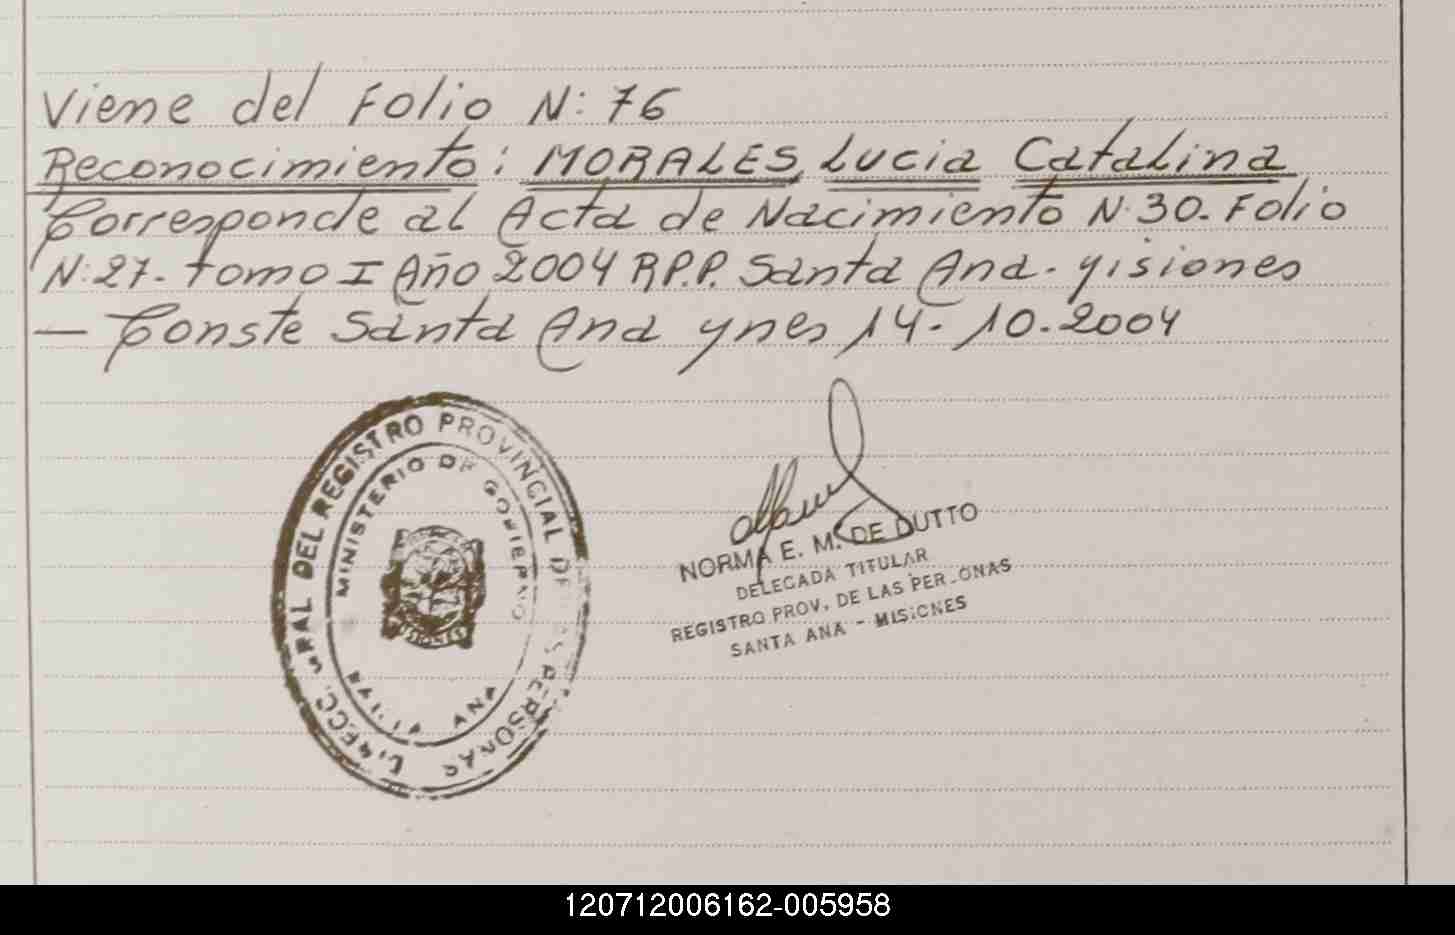 Viene del Folio N: 76
Reconocimiento: MORALES, Lucia Catalina
Corresponde al Acta de Nacimiento N. 30. Folio
N: 27. Tomo I Año 2004 R.P.P. Santa Ana. Misiones
— Conste Santa Ana Mnes 14. 10. 2004
GRAL DEL REGISTRO PROVINCIAL DE PERSONAS
MINISTERIO DE GOBIERNO
ANA
NORMA E. M. DE DUTTO
DELEGADA TITULAR
REGISTRO PROV. DE LAS PERSONAS
SANTA ANA - MISIONES
120712006162-005958